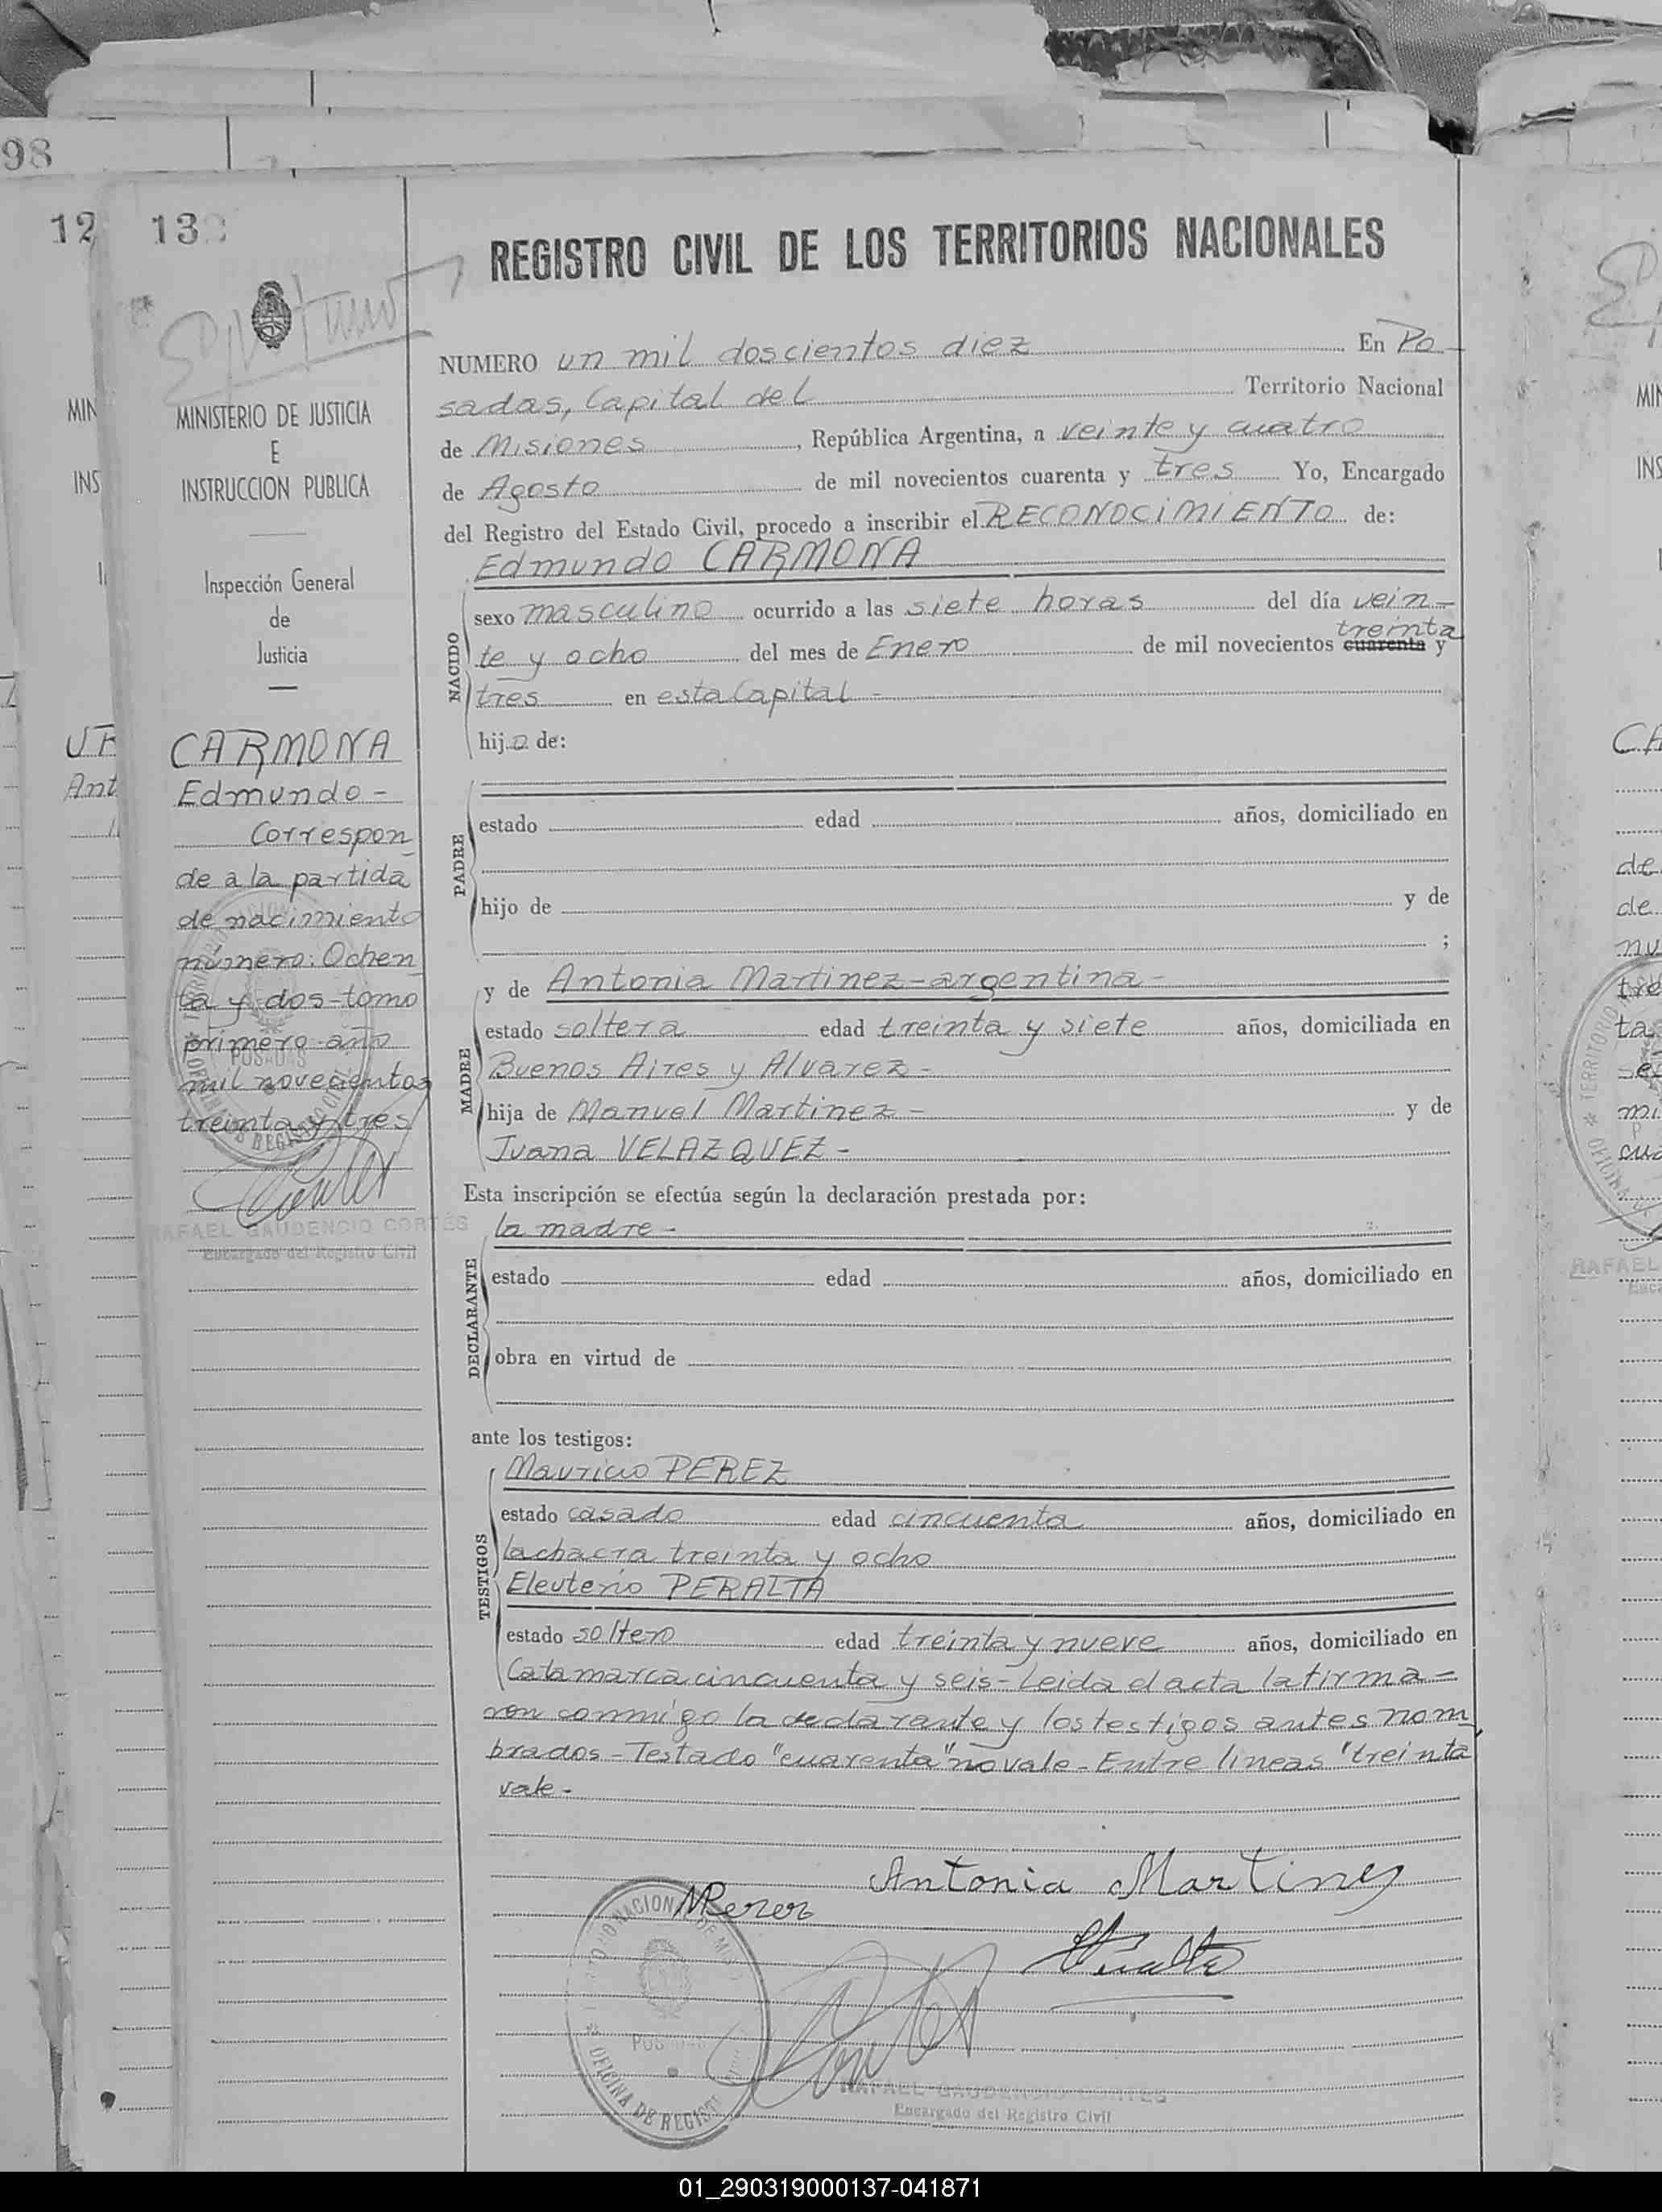 98
12
13
REGISTRO CIVIL DE LOS TERRITORIOS NACIONALES
MINISTERIO DE JUSTICIA
E
INSTRUCCION PUBLICA
Inspección General
de
Justicia
CARMONA
Edmundo -
Correspon
de a la partida
de nacimiento
número: Ochen
ta y dos-tomo
primero-año
mil novecientos
treinta y tres
RAFAEL GAUDENCIO CORTÉS
Encargado del Registro Civil
NUMERO un mil doscientos diez En Po-
sadas, Capital del Territorio Nacional
de Misiones, República Argentina, a veinte y cuatro
de Agosto de mil novecientos cuarenta y tres Yo, Encargado
del Registro del Estado Civil, procedo a inscribir el RECONOCIMIENTO de:
Edmundo CARMONA
NACIDO
sexo masculino ocurrido a las siete horas del día vein-
treinta
te y ocho del mes de Enero de mil novecientos cuarenta y
tres en esta Capital -
hijo de:
PADRE
estado edad años, domiciliado en
hijo de y de
;
y de Antonia Martinez-argentina-
MADRE
estado soltera edad treinta y siete años, domiciliada en
Buenos Aires y Alvarez -
hija de Manuel Martinez - y de
Juana VELAZQUEZ -
Esta inscripción se efectúa según la declaración prestada por:
la madre -
DECLARANTE
estado edad años, domiciliado en
obra en virtud de
ante los testigos:
TESTIGOS
Mauricio PEREZ
estado casado edad cincuenta años, domiciliado en
la chacra treinta y ocho
Eleuterio PERALTA
estado soltero edad treinta y nueve años, domiciliado en
Catamarca cincuenta y seis-Leida el acta la firma-
ron conmigo la declarante y los testigos antes nom
brados-Testado "cuarenta" no vale-Entre lineas "treinta
vale-
Antonia Martinez
MPerez
POSADAS
OFICINA DE REGISTRO
RAFAEL GAUDENCIO CORTES
Encargado del Registro Civil
01_290319000137-041871